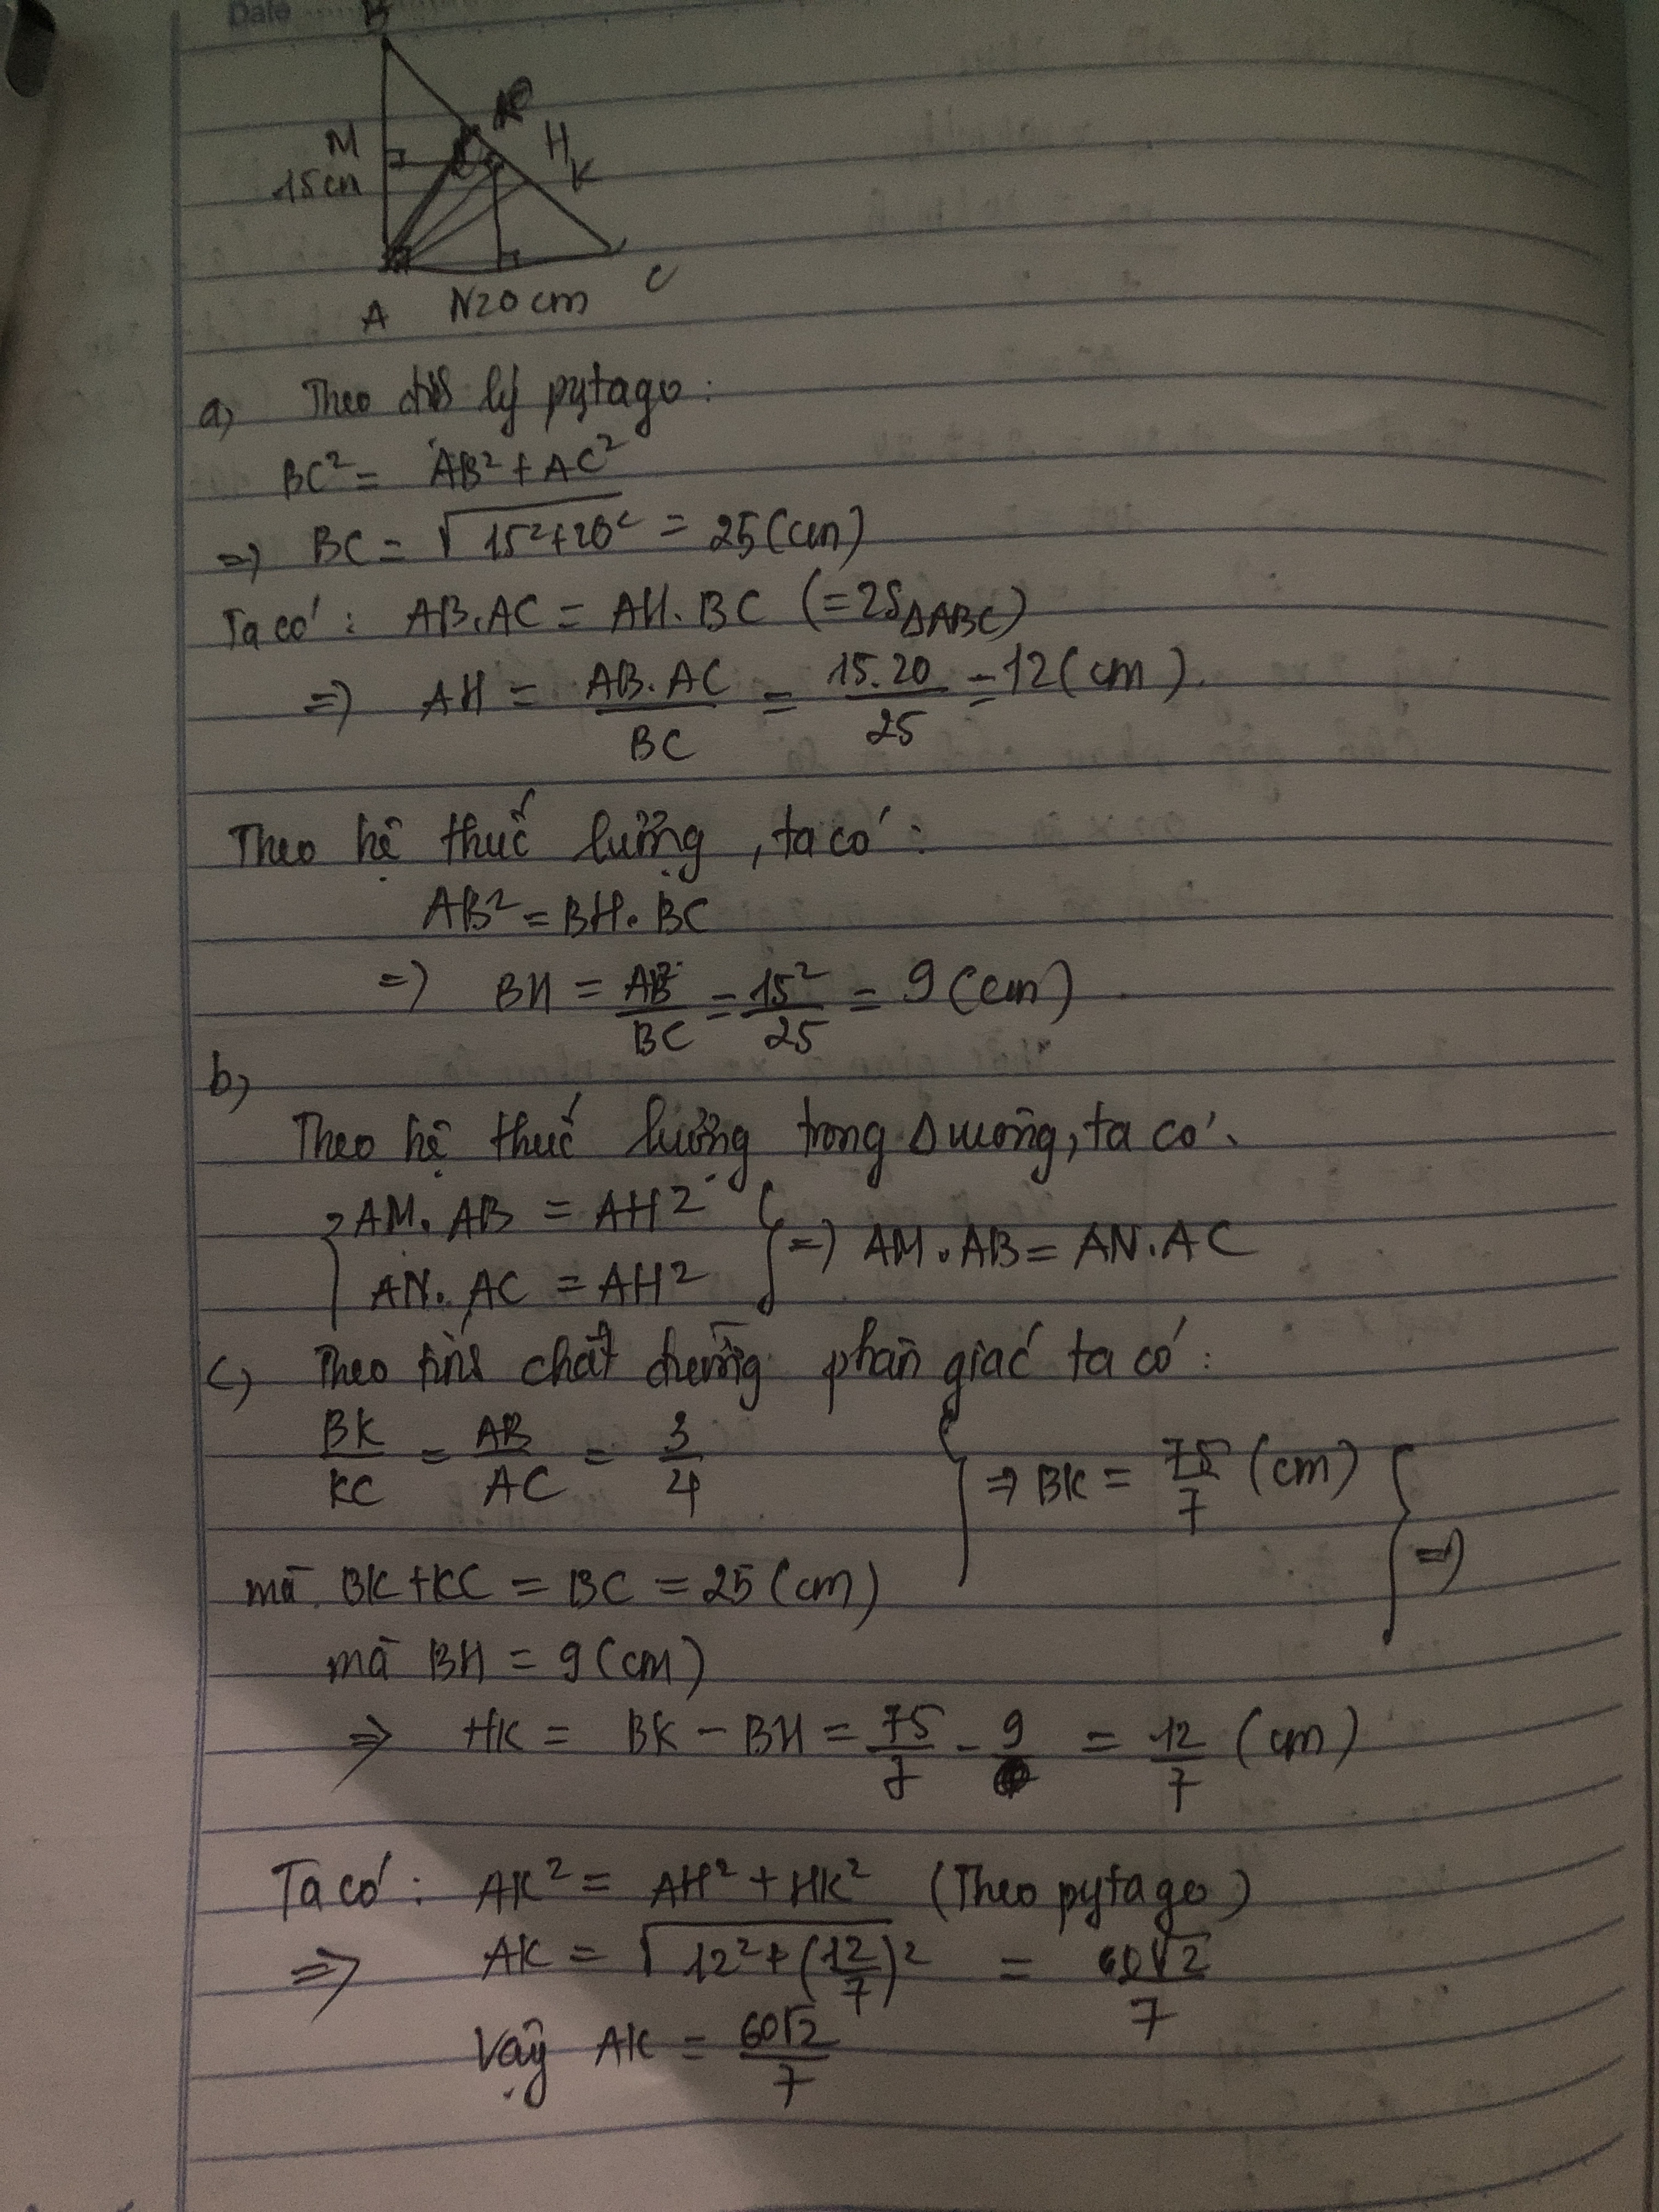 Date
B
M
H
K
15cm
A
N 20 cm
C
a) Theo định lý pytago:
BC² = AB² + AC²
=> BC = √15²+20² = 25 (cm)
Ta có: AB.AC = AH.BC (=2SΔABC)
=> AH = AB.AC/BC = 15.20/25 = 12 (cm).
Theo hệ thức lượng, ta có:
AB² = BH.BC
=> BH = AB²/BC = 15²/25 = 9 (cm).
b)
Theo hệ thức lượng trong Δ vuông, ta có.
{ AM.AB = AH²
AN.AC = AH² } => AM.AB = AN.AC
c) Theo tính chất đường phân giác ta có:
BK/KC = AB/AC = 3/4 } => BK = 75/7 (cm) } =>
mà BK+KC = BC = 25 (cm)
mà BH = 9 (cm)
=> HK = BK - BH = 75/7 - 9 = 12/7 (cm)
Ta có: AK² = AH² + HK² (Theo pytago)
=> AK = √12²+(12/7)² = 60√2/7
Vậy AK = 60√2/7